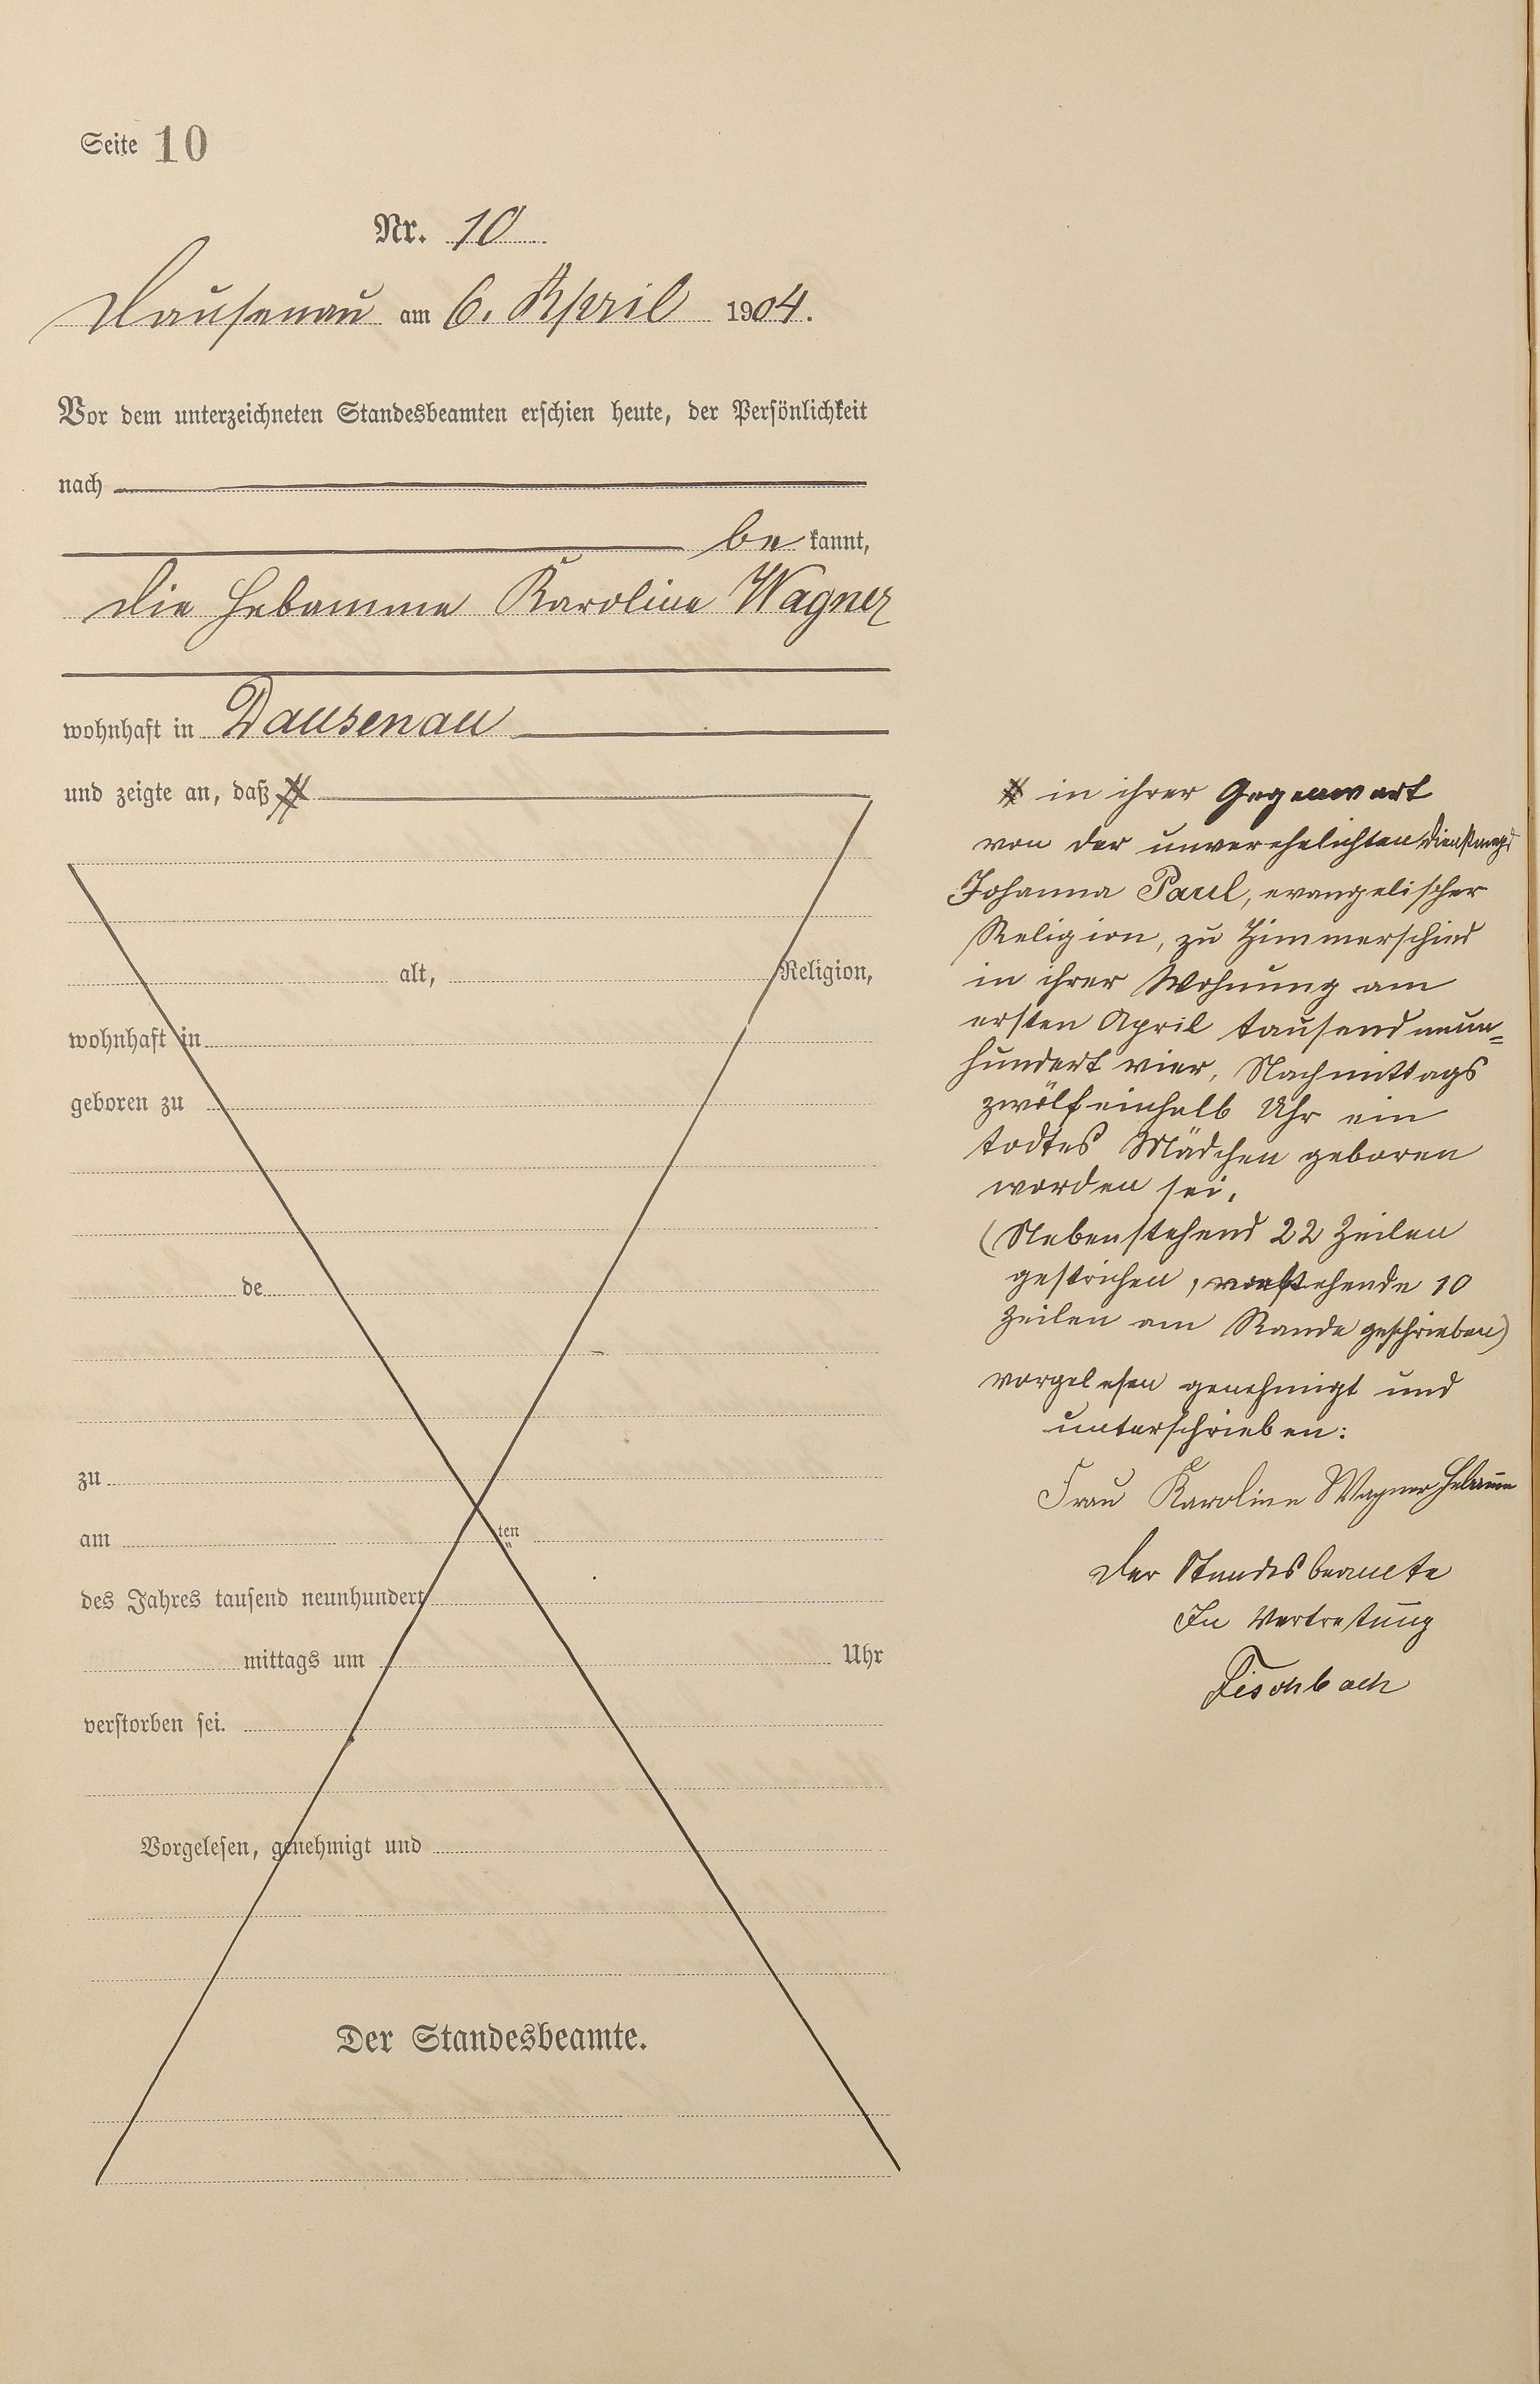 Seite 10
Nr. 10
Dausenau am 6. April 1904.
Vor dem unterzeichneten Standesbeamten erschien heute, der Persönlichkeit
nach
be kannt,
die Hebamme Karoline Wagner
wohnhaft in Dausenau
und zeigte an, daß #
alt, Religion,
wohnhaft in
geboren zu
de
zu
am ten
des Jahres tausend neunhundert
mittags um Uhr
verstorben sei.
Vorgelesen, genehmigt und
Der Standesbeamte.
# in ihrer Gegenwart
von der unverehelichten Dienstmagd
Johanna Paul, evangelischer
Religion, zu Zimmerschied
in ihrer Wohnung am
ersten April tausend neun=
hundert vier, Nachmittags
zwölfeinhalb Uhr ein
todtes Mädchen geboren
worden sei.
(Nebenstehend 22 Zeilen
gestrichen, vorstehende 10
Zeilen am Rande geschrieben)
vorgelesen genehmigt und
unterschrieben:
Frau Karoline Wagner Hebamme
Der Standesbeamte
In Vertretung
Fischbach